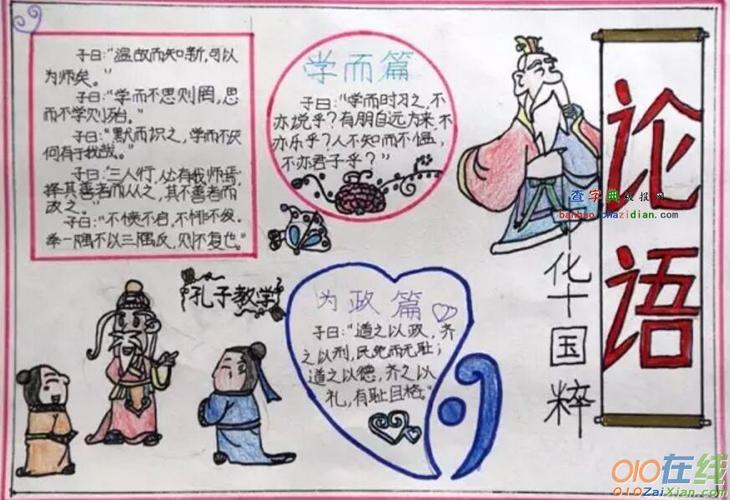 子曰:"温故而知新,可以
为师矣。"
子曰:"学而不思则罔,思
而不学则殆。"
子曰:"默而识之,学而不厌
何有于我哉。"
子曰:"三人行,必有我师焉
择其善者而从之,其不善者而
改之。
子曰:"不愤不启,不悱不发。
举一隅不以三隅反,则不复也。"
学而篇
子曰:"学而时习之,不
亦说乎?有朋自远方来,不
亦乐乎?人不知而不愠,
不亦君子乎?"
孔子教学
为政篇
子曰:"道之以政,齐
之以刑,民免而无耻;
道之以德,齐之以
礼,有耻且格。"
论语
化十国粹
查字典 板报网
banbao.chazidian.com
010在线
010ZaiXian.com